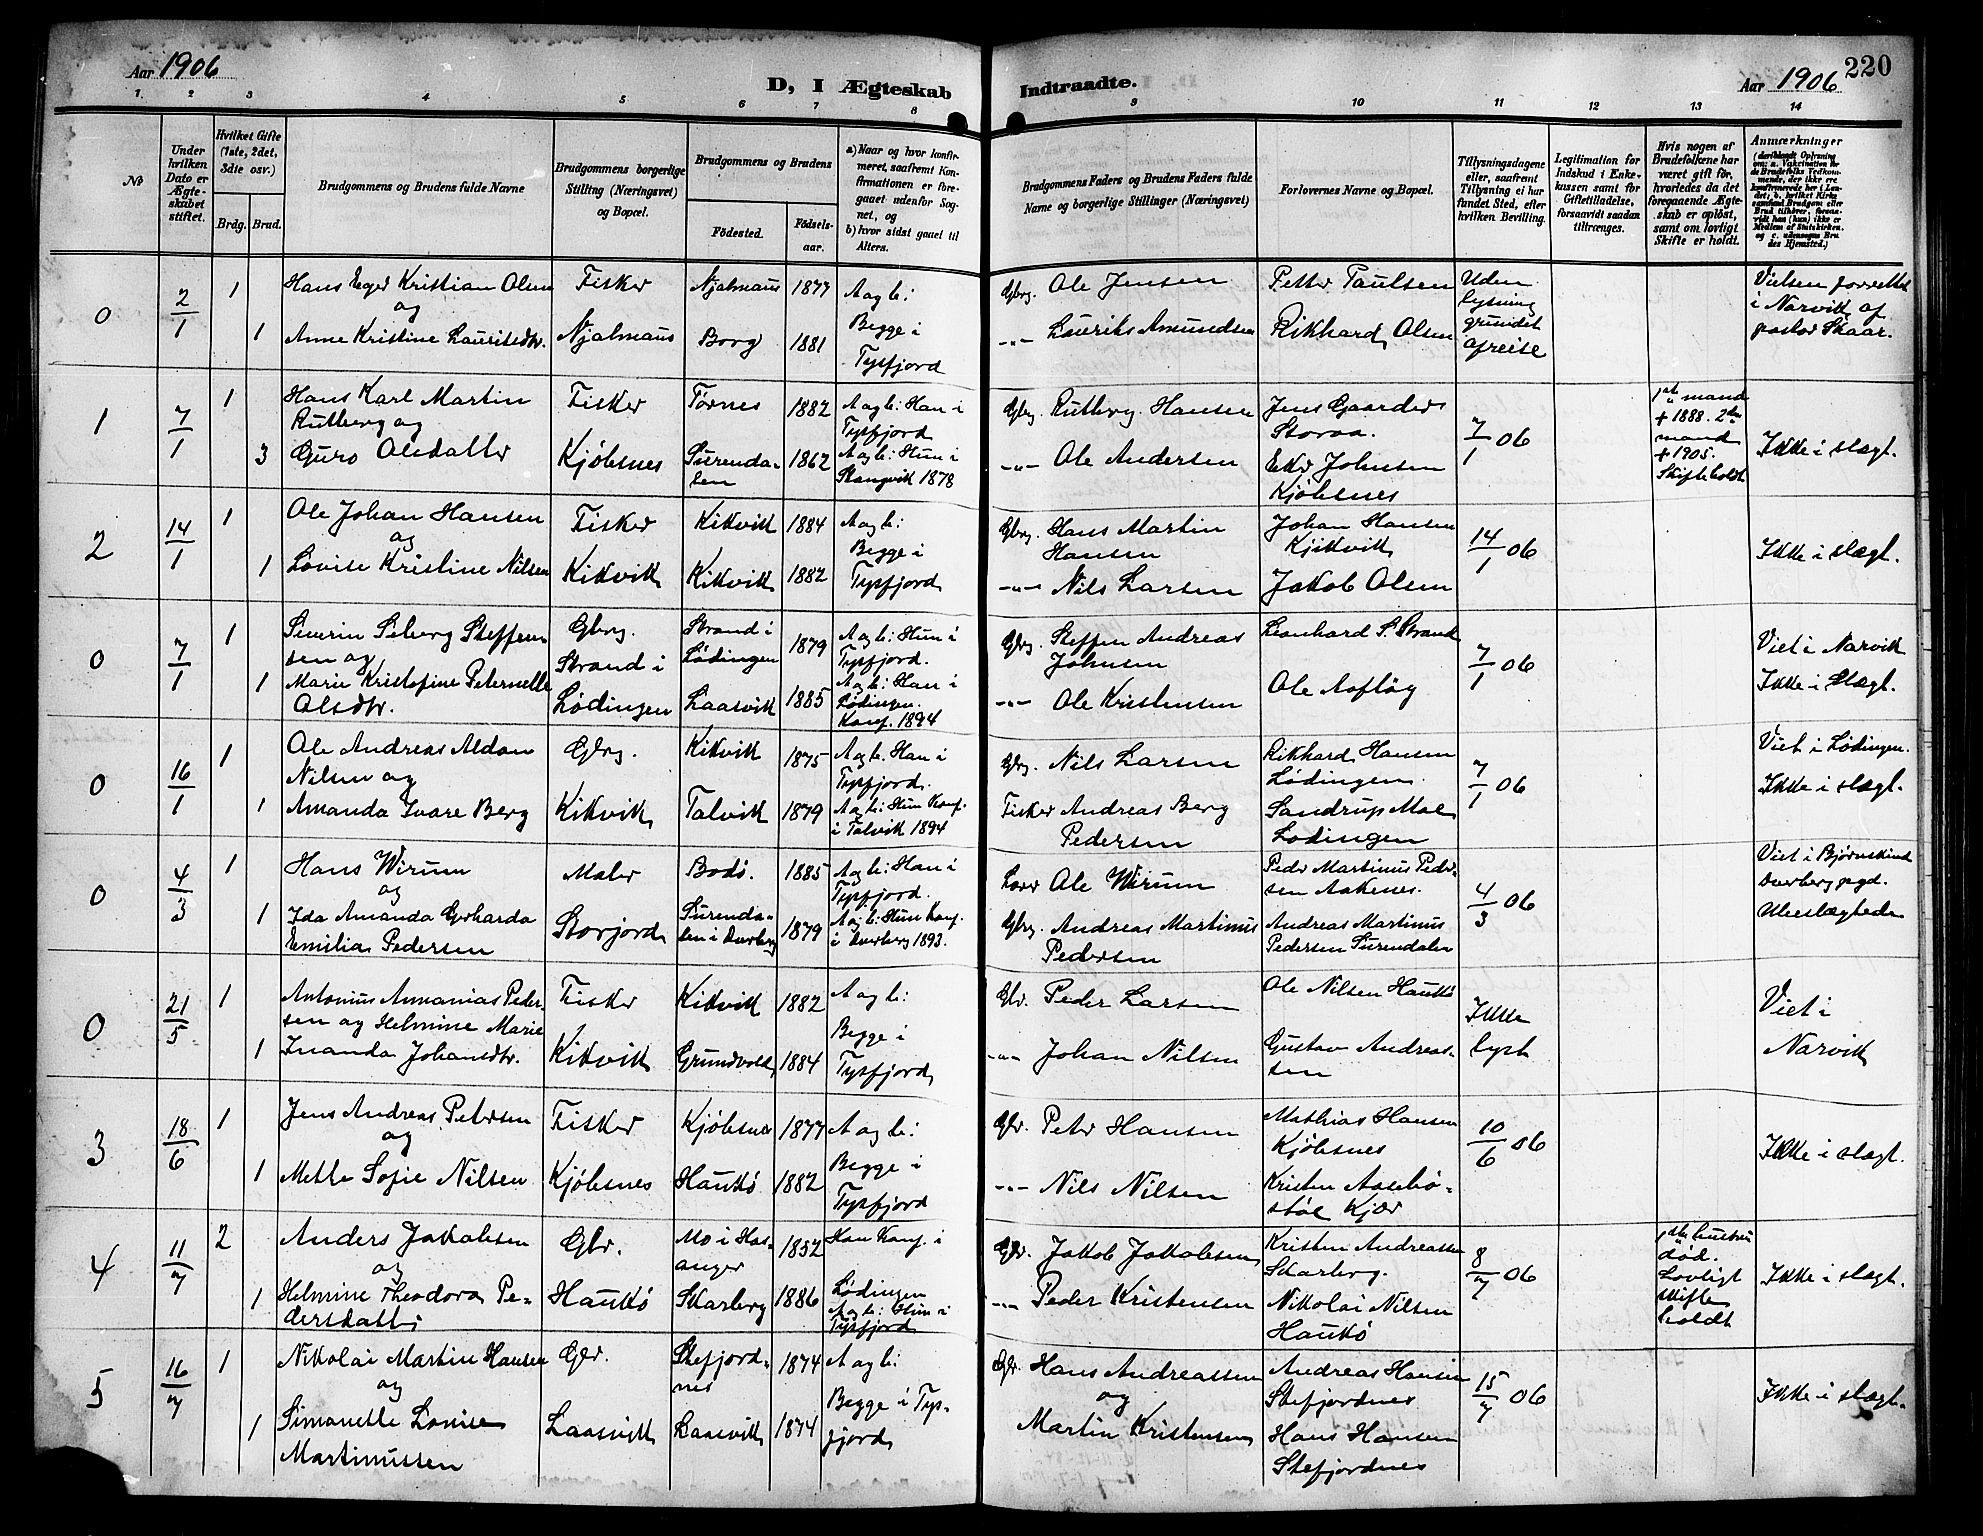 Aar 1906
D, I Ægteskab
Indtraadte.
Aar 1906
220
1.
2
3
4
5
6
7
8
9
10
11
12
13
14
No
Under hvilken Dato er Ægteskabet stiftet.
Hvilket Gifte (1ste, 2det, 3die osv.)
Brdg.
Brud.
Brudgommens og Brudens fulde Navne
Brudgommens borgerlige Stilling (Næringsvei) og Bopæl.
Brudgommens og Brudens
Födested.
Födselsaar.
a) Naar og hvor konfirmeret, saafremt Konfirmationen er foregaaet udenfor Sognet, og
b) hvor sidst gaaet til Alters.
Brudgommens Faders og Brudens Faders fulde Navne og borgerlige Stillinger (Næringsvei)
Forlovernes Navne og Bopæl.
Tillysningsdagene eller, saafremt Tillysning ei har fundet Sted, efter hvilken Bevilling.
Legitimation for Indskud i Enkekassen samt for Giftetilladelse, forsaavidt saadan tiltrænges.
Hvis nogen af Brudefolkene har været gift før, hvorledes da det foregaaende Ægteskab er opløst, samt om lovligt Skifte er holdt.
Anmærkninger
0
2/1
1
Hans Eger Kristian Olsen
og
1 Anne Kristine Lauritsdtr.
Fisker
Njalmaus
Njalmaus 1877
Borg 1881
A og b:
Begge i
Tysfjord
Gbrg. Ole Jensen
-"- Lauriks Amundsen
Petter Paulsen
Rikhard Olsen
Uden
lysning
grundet
afreise
Vielsen forrettet
i Narvik af
pastor Skaar.
1
7/1
1
Hans Karl Martin
Rutberg og
3 Guro Olsdatter
Fisker
Kjöbsnes
Tørnes 1882
Surendalen 1862
A og b: Han i
Tysfjord
A og b: Hun i
Stangvik 1878
Gbrg. Rutberg Hansen
-"- Ole Andersen
Jens Gaarder
Storaa.
Johnsen
Kjöbsnes
7/1 06
1ste mand
+ 1888. 2den
mand
+ 1905.
Skifte holdt
Ikke i slægt.
2
14/1
1
Ole Johan Hansen
og
1 Lovise Kristine Nilsen
Fisker
Kikvik
Kikvik 1884
Kikvik 1882
A og b:
Begge i
Tysfjord
Gbrg. Hans Martin
Hansen
-"- Nils Larsen
Johan Hansen
Kjikvik
Jakob Olsen
14/1 06
Ikke i slægt.
0
7/1
1
Severin Seberg Steffensen og
1 Marie Kristofine Peternelle
Olsdtr.
Gbrg.
Strand i
Lødingen
Strand i
Lødingen 1879
Laasvik 1885
A og b: Hun i
Tysfjord.
A og b: Han i
Lødingen.
Konf. 1894
Gbrg. Steffen Andreas
Johnsen
-"- Ole Kristensen
Leonhard S. Strand
Ole Aofløg
7/1 06
Viet i Narvik
Ikke i slægt.
0
16/1
1
Ole Andreas Aldon
Nilsen og
1 Amanda Ivare Berg
Gbrg.
Kikvik
Kikvik 1875
Talvik 1879
A og b: Han i
Tysfjord.
A og b: Hun Konf.
i Talvik 1894
Gbrg. Nils Larsen
Fisker Andreas Berg
Pedersen
Rikhard Hansen
Lødingen.
Sandrup Moe
Lødingen
7/1 06
Viet i Lødingen.
Ikke i slægt.
0
4/3
1
Hans Wirum
og
1 Ida Amanda Gerharda
Emilia Pedersen
Maler
Storjord
Bodö. 1885
Surendalen i Dverberg 1879
A og b: Han i
Tysfjord.
A og b: Hun Konf.
i Dverberg 1893.
Ole Wirum
Gbrg. Andreas Martinus
Pedersen
Peder Martinus Pedersen Aakenes.
Andreas Martinus
Pedersen Surendalen
4/3 06
Viet i Bjørnskind
Dverberg pgd.
Ubeslægtede
0
21/5
1
Antonius Annanias Pedersen og Helmine Marie
1 Inanda Johansdtr.
Fisker
Kikvik
Kikvik 1882
Grundvold 1884
A og b:
Begge i
Tysfjord
Gbr. Peder Larsen
-"- Johan Nilsen
Ole Nilsen Haukö
Gustav Andreassen
Ikke
lyst
Viet i
Narvik
3
18/6
1
Jens Andreas Petersen
og
1 Mette Sofie Nilsen
Fisker
Kjöbsnes
Kjöbsnes 1877
Haukö 1882
A og b:
Begge i
Tysfjord
Gbr. Peter Hansen
-"- Nils Nilsen
Mathias Hansen
Kjöbsnes
Kristen Aasebøstøl Kjær
10/6 06
Ikke i slægt.
4
11/7
2
Anders Jakobsen
og
1 Helmine Theodora Pedersdatter
Gbr.
Haukö
Mo i Hasanger 1852
Skarberg 1886
Han Konf. i
Lødingen
A og b: Hun i
Tysfjord
Gbr. Jakob Jakobsen
-"- Peder Kristensen
Kristen Andreassen
Skarberg.
Nikolai Nilsen
Haukö
8/7 06
1ste hustru
død.
Lovligt
skifte
holdt
Ikke i slægt.
5
16/7
1
Nikolai Martin Hansen
og
1 Simanette Lovise
Martinussen
Gbr.
Laasvik
Stefjordnes 1874
Laasvik 1874
A og b:
Begge i Tysfjord
Gbr. Hans Andreassen
og
Martin Kristensen
Andreas Hansen
Stefjordnes
Hans Hansen
Stefjordnes
15/7 06
Ikke i slægt.